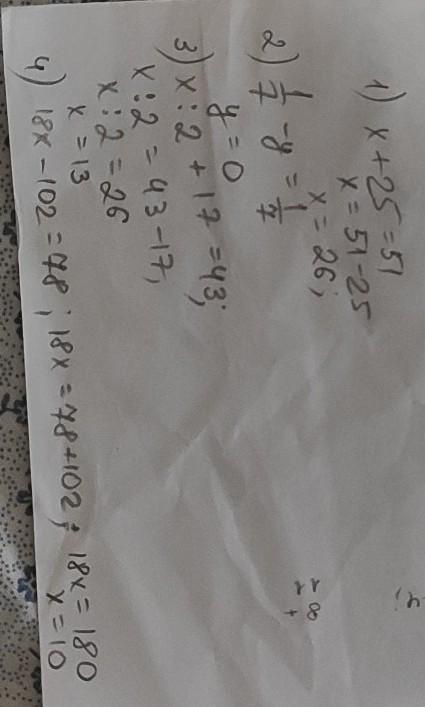 1) x + 25 = 51
x = 51 - 25
x = 26;
2) 1/7 - y = 1/7
y = 0
3) x : 2 + 17 = 43;
x : 2 = 43 - 17,
x : 2 = 26
x = 13
4) 18x - 102 = 78; 18x = 78 + 102; 18x = 180
x = 10